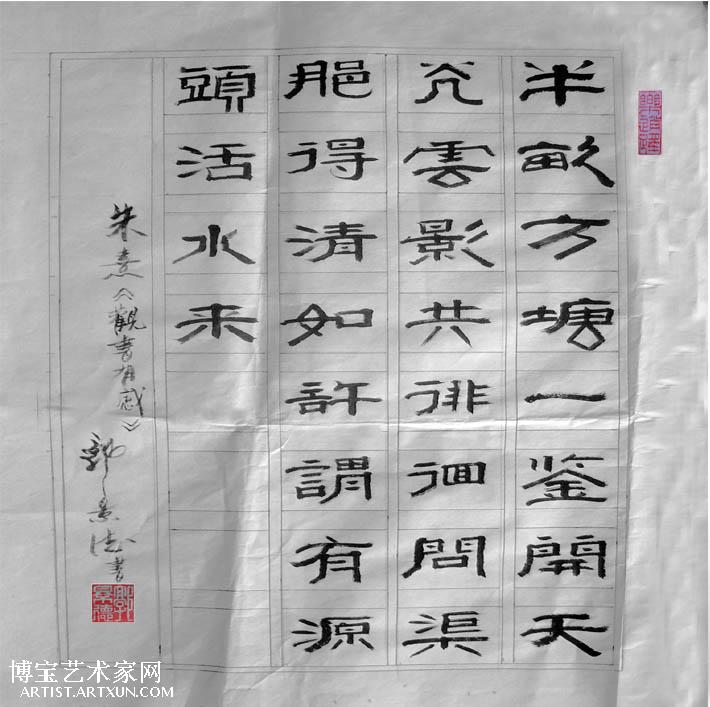 半畝方塘一鉴開天
光雲影共徘徊問渠
那得清如許謂有源
頭活水来
朱熹《觀書有感》 郭景德書
郭景德
博宝艺术家网
ARTIST.ARTXUN.COM